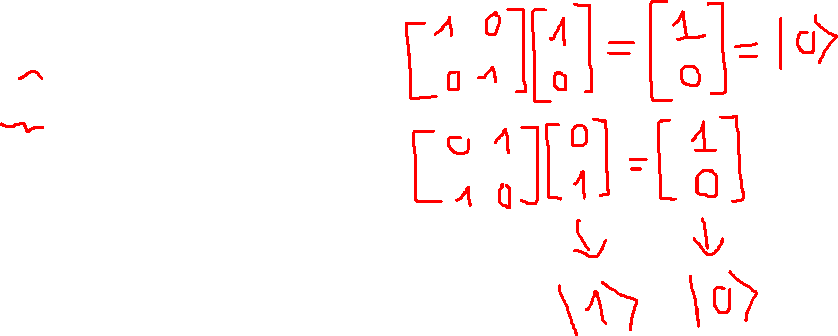 [1 0 0 1] [1 0] = [1 0] = |0⟩
[0 1 1 0] [0 1] = [1 0]
↓ ↓
|1⟩ |0⟩